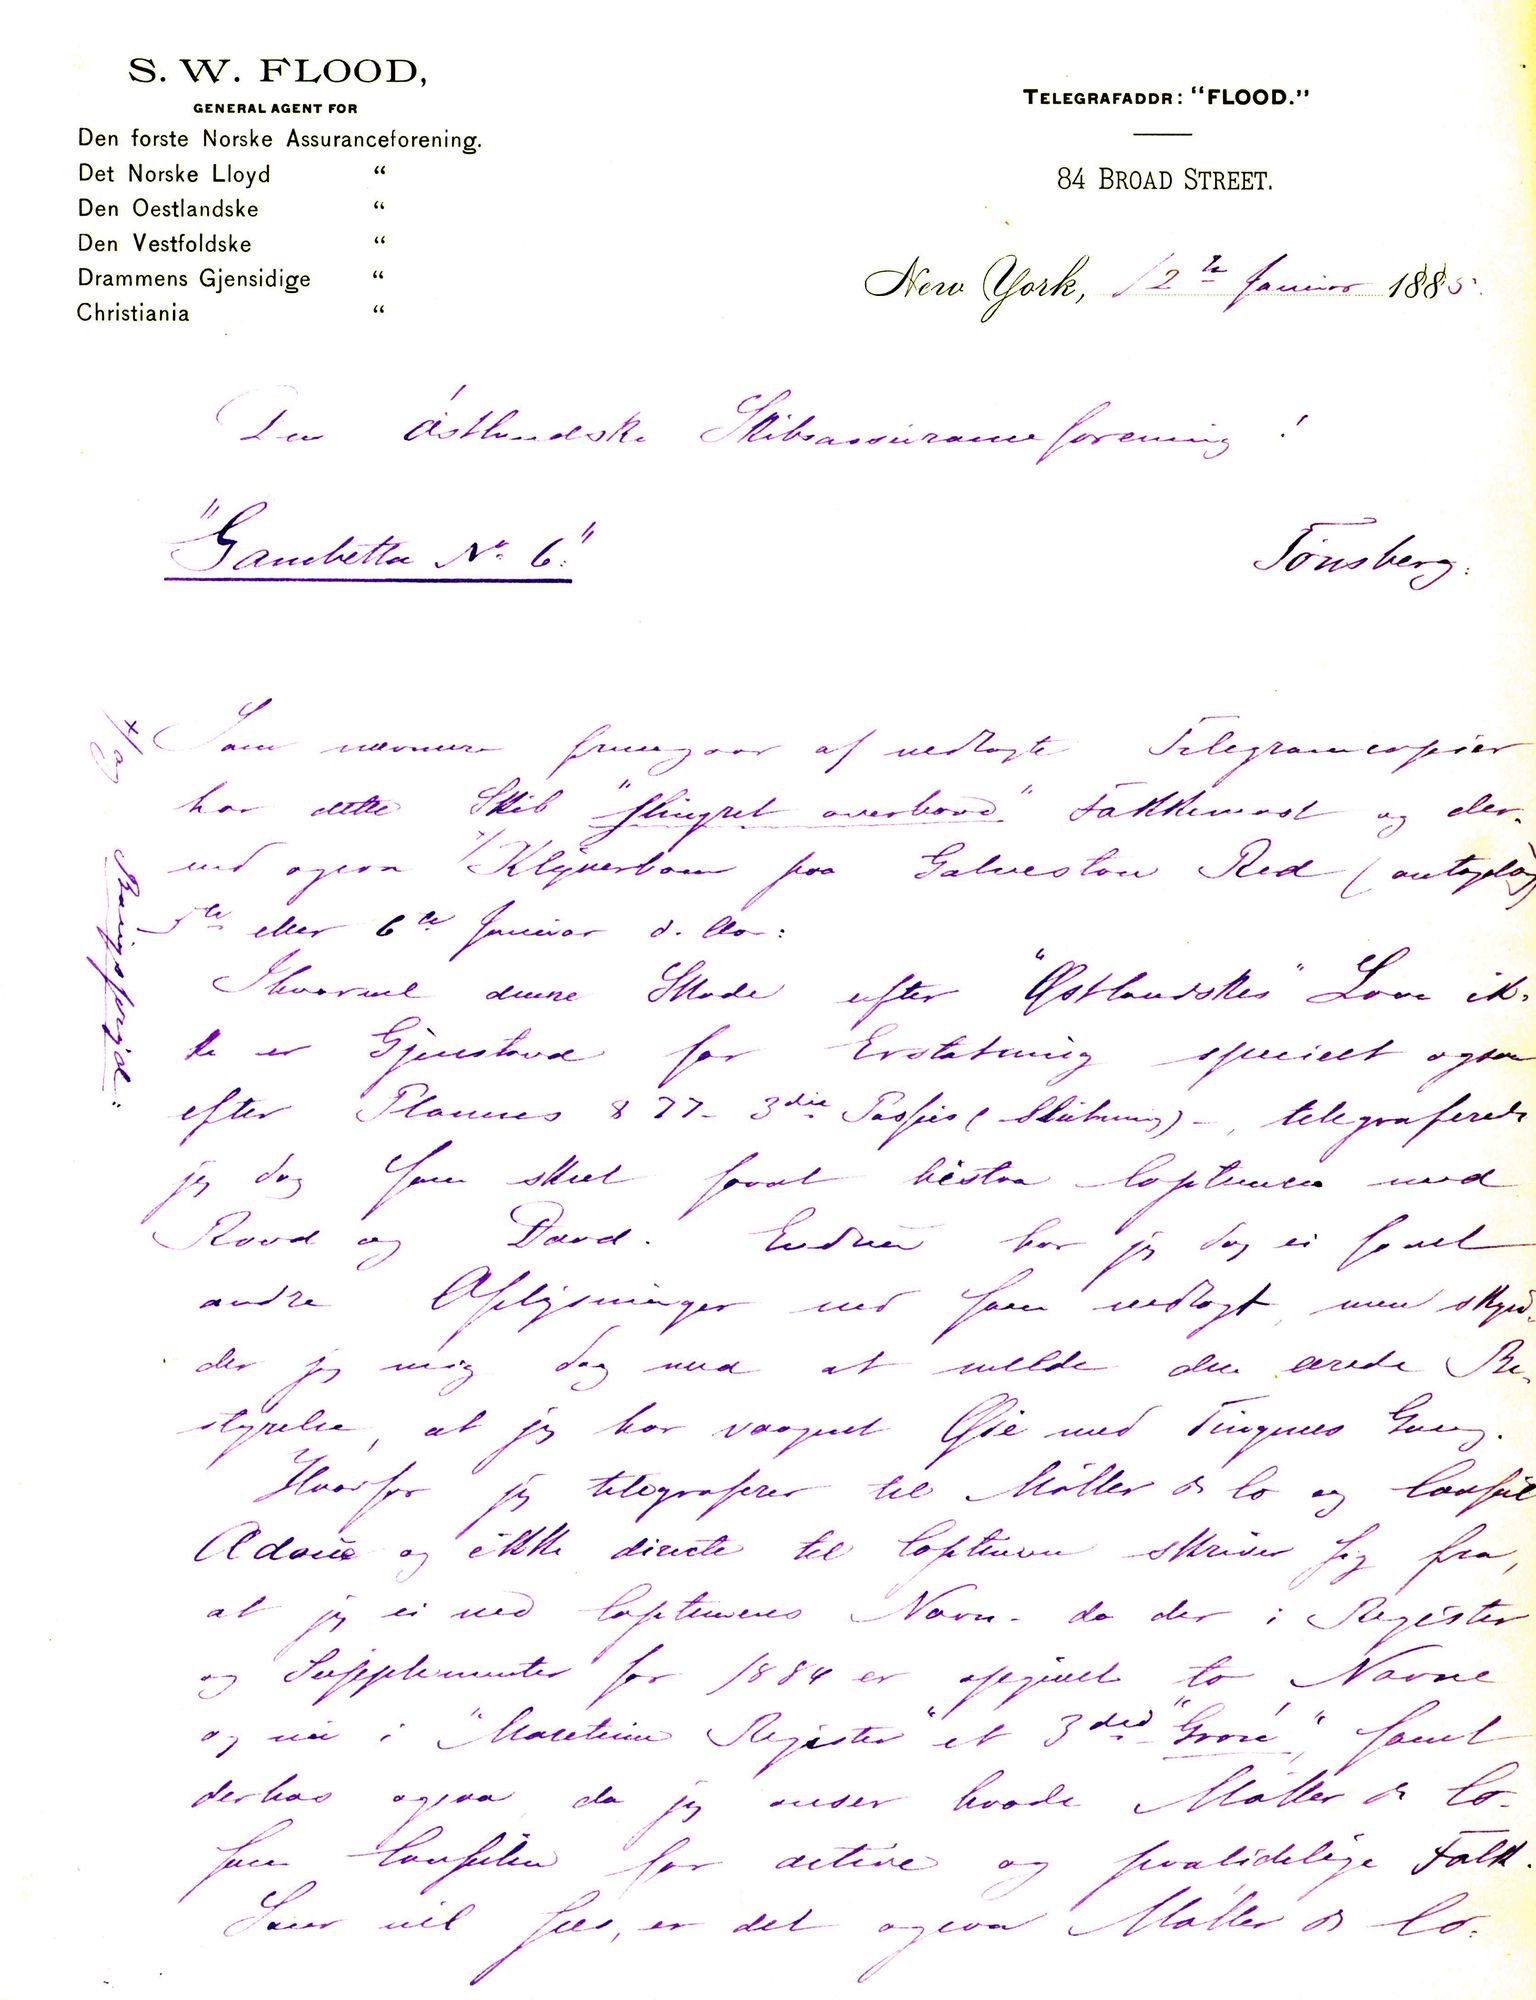 S. W. FLOOD,
GENERAL AGENT FOR
Den forste Norske Assuranceforening.
Det Norske Lloyd “
Den Oestlandske “
Den Vestfoldske “
Drammens Gjensidige “
Christiania “
TELEGRAFADDR: “FLOOD.”
84 BROAD STREET.
New York, 12te Januar 1885.
Den Østlandske Skibsassuranceforening!
"Gambetta No. 6."
Tønsberg.
Som nærmere fremgaar af vedlagte Telegramcopier
har dette Skib "slingret overbord" Fokkemast og der-
ved ogsaa x/ Klyverbom paa Galveston Red (antagelig
5te eller 6te Januar d. Aar:
x/ og Baugsprydt"
Ihvorvel denne Skade efter "Østlandskes" Love ik-
ke er Gjenstand for Erstatning specielt ogsaa
efter Planens § 77- 3die Passus (Slutning) -, telegraferede
jeg dog for skul bistaa Captainen med
Raad og Daad. Endnu har jeg dog ei faaet
andre Oplysninger end som vedlagt, men skyn-
der jeg mig dog med at melde den ærede Be-
styrelse, at jeg har vaagent Øie med Tingenes Gang.
Hvorfor jeg telegraferer til Møller & Co og Consul
Adoue og ikke directe til Captainen skriver sig fra,
at jeg ei ved Captainens Navn - da der i Register
og Supplementer for 1884 er opgivet to Navne
og nu i "Maritime Register" et 3die "Grove", samt
derhos ogsaa da jeg anser baade Møller & Co
som Consulen for active og paalidelige Folk.
Som vil sees, er det ogsaa Møller & Co.